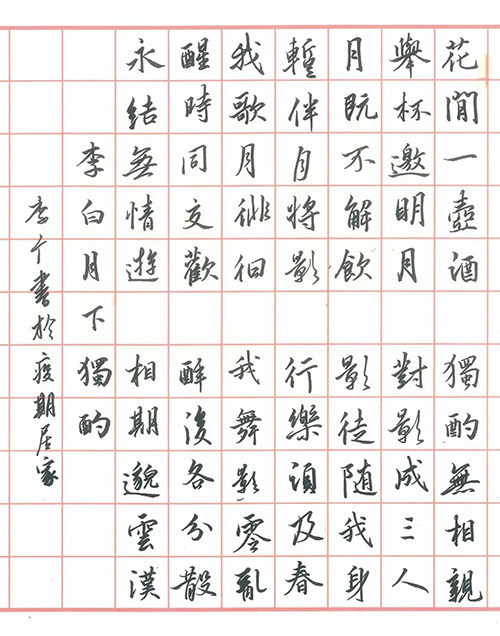 花閒一壺酒 獨酌無相親
舉杯邀明月 對影成三人
月既不解飲 影徒随我身
暫伴月將影 行樂須及春
我歌月徘徊 我舞影零亂
醒時同交歡 醉後各分散
永結無情遊 相期邈雲漢
李白月下 獨酌
李个書於疫期居家